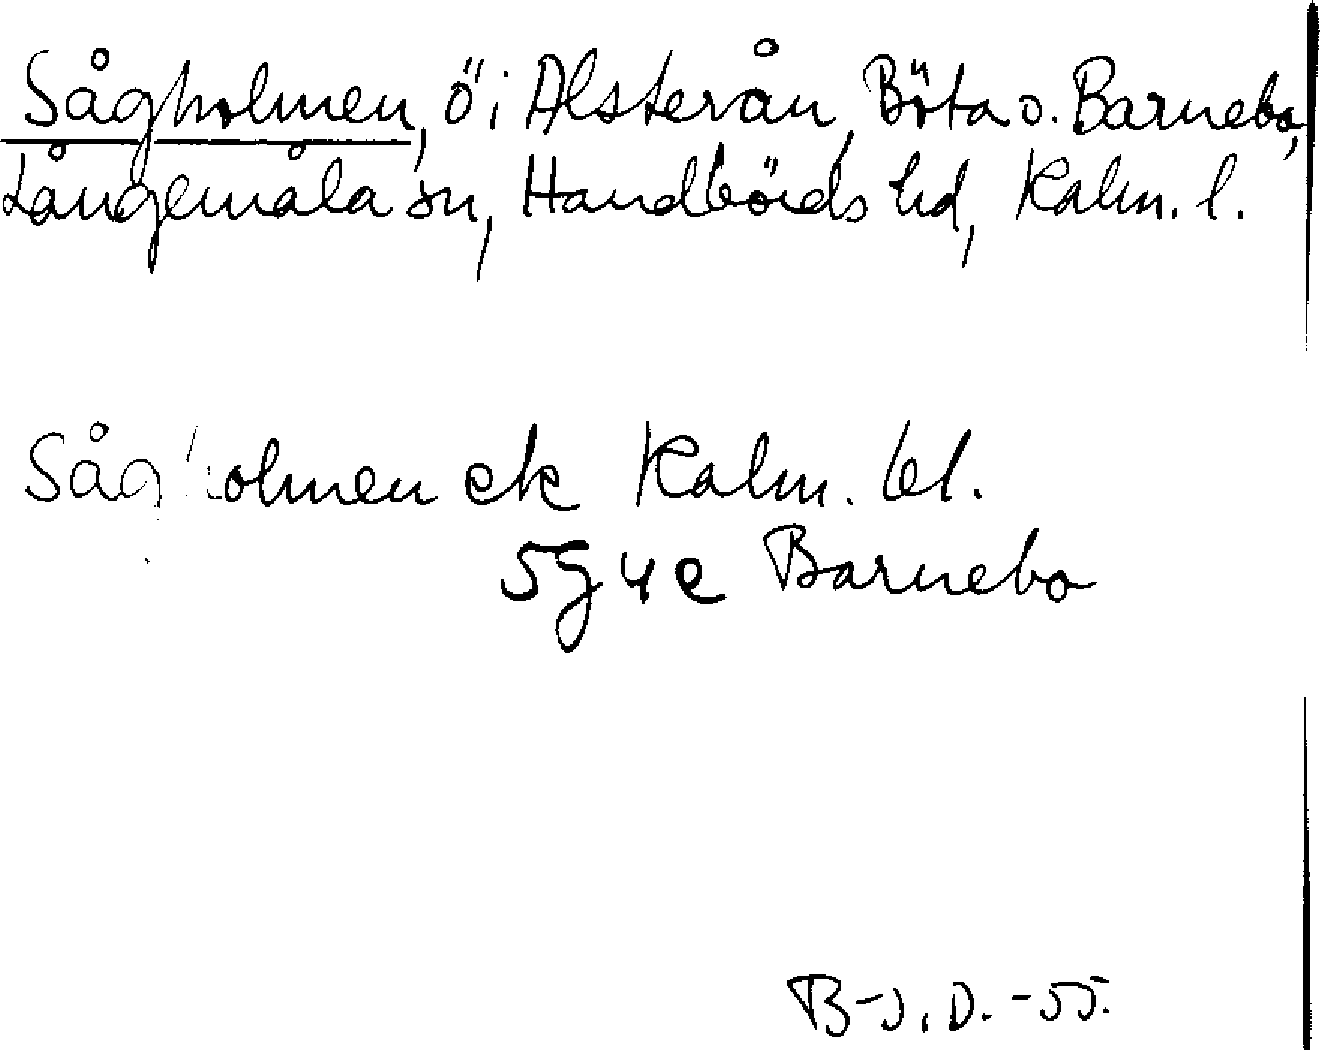 Sågholmen, ö i Alsterån, Böta o. Barnebo,
Långemåla sn, Handbörds hd, Kalm. l.
Sågholmen ek Kalm. bl.
5g4e Barnebo
B-J. D. -55.